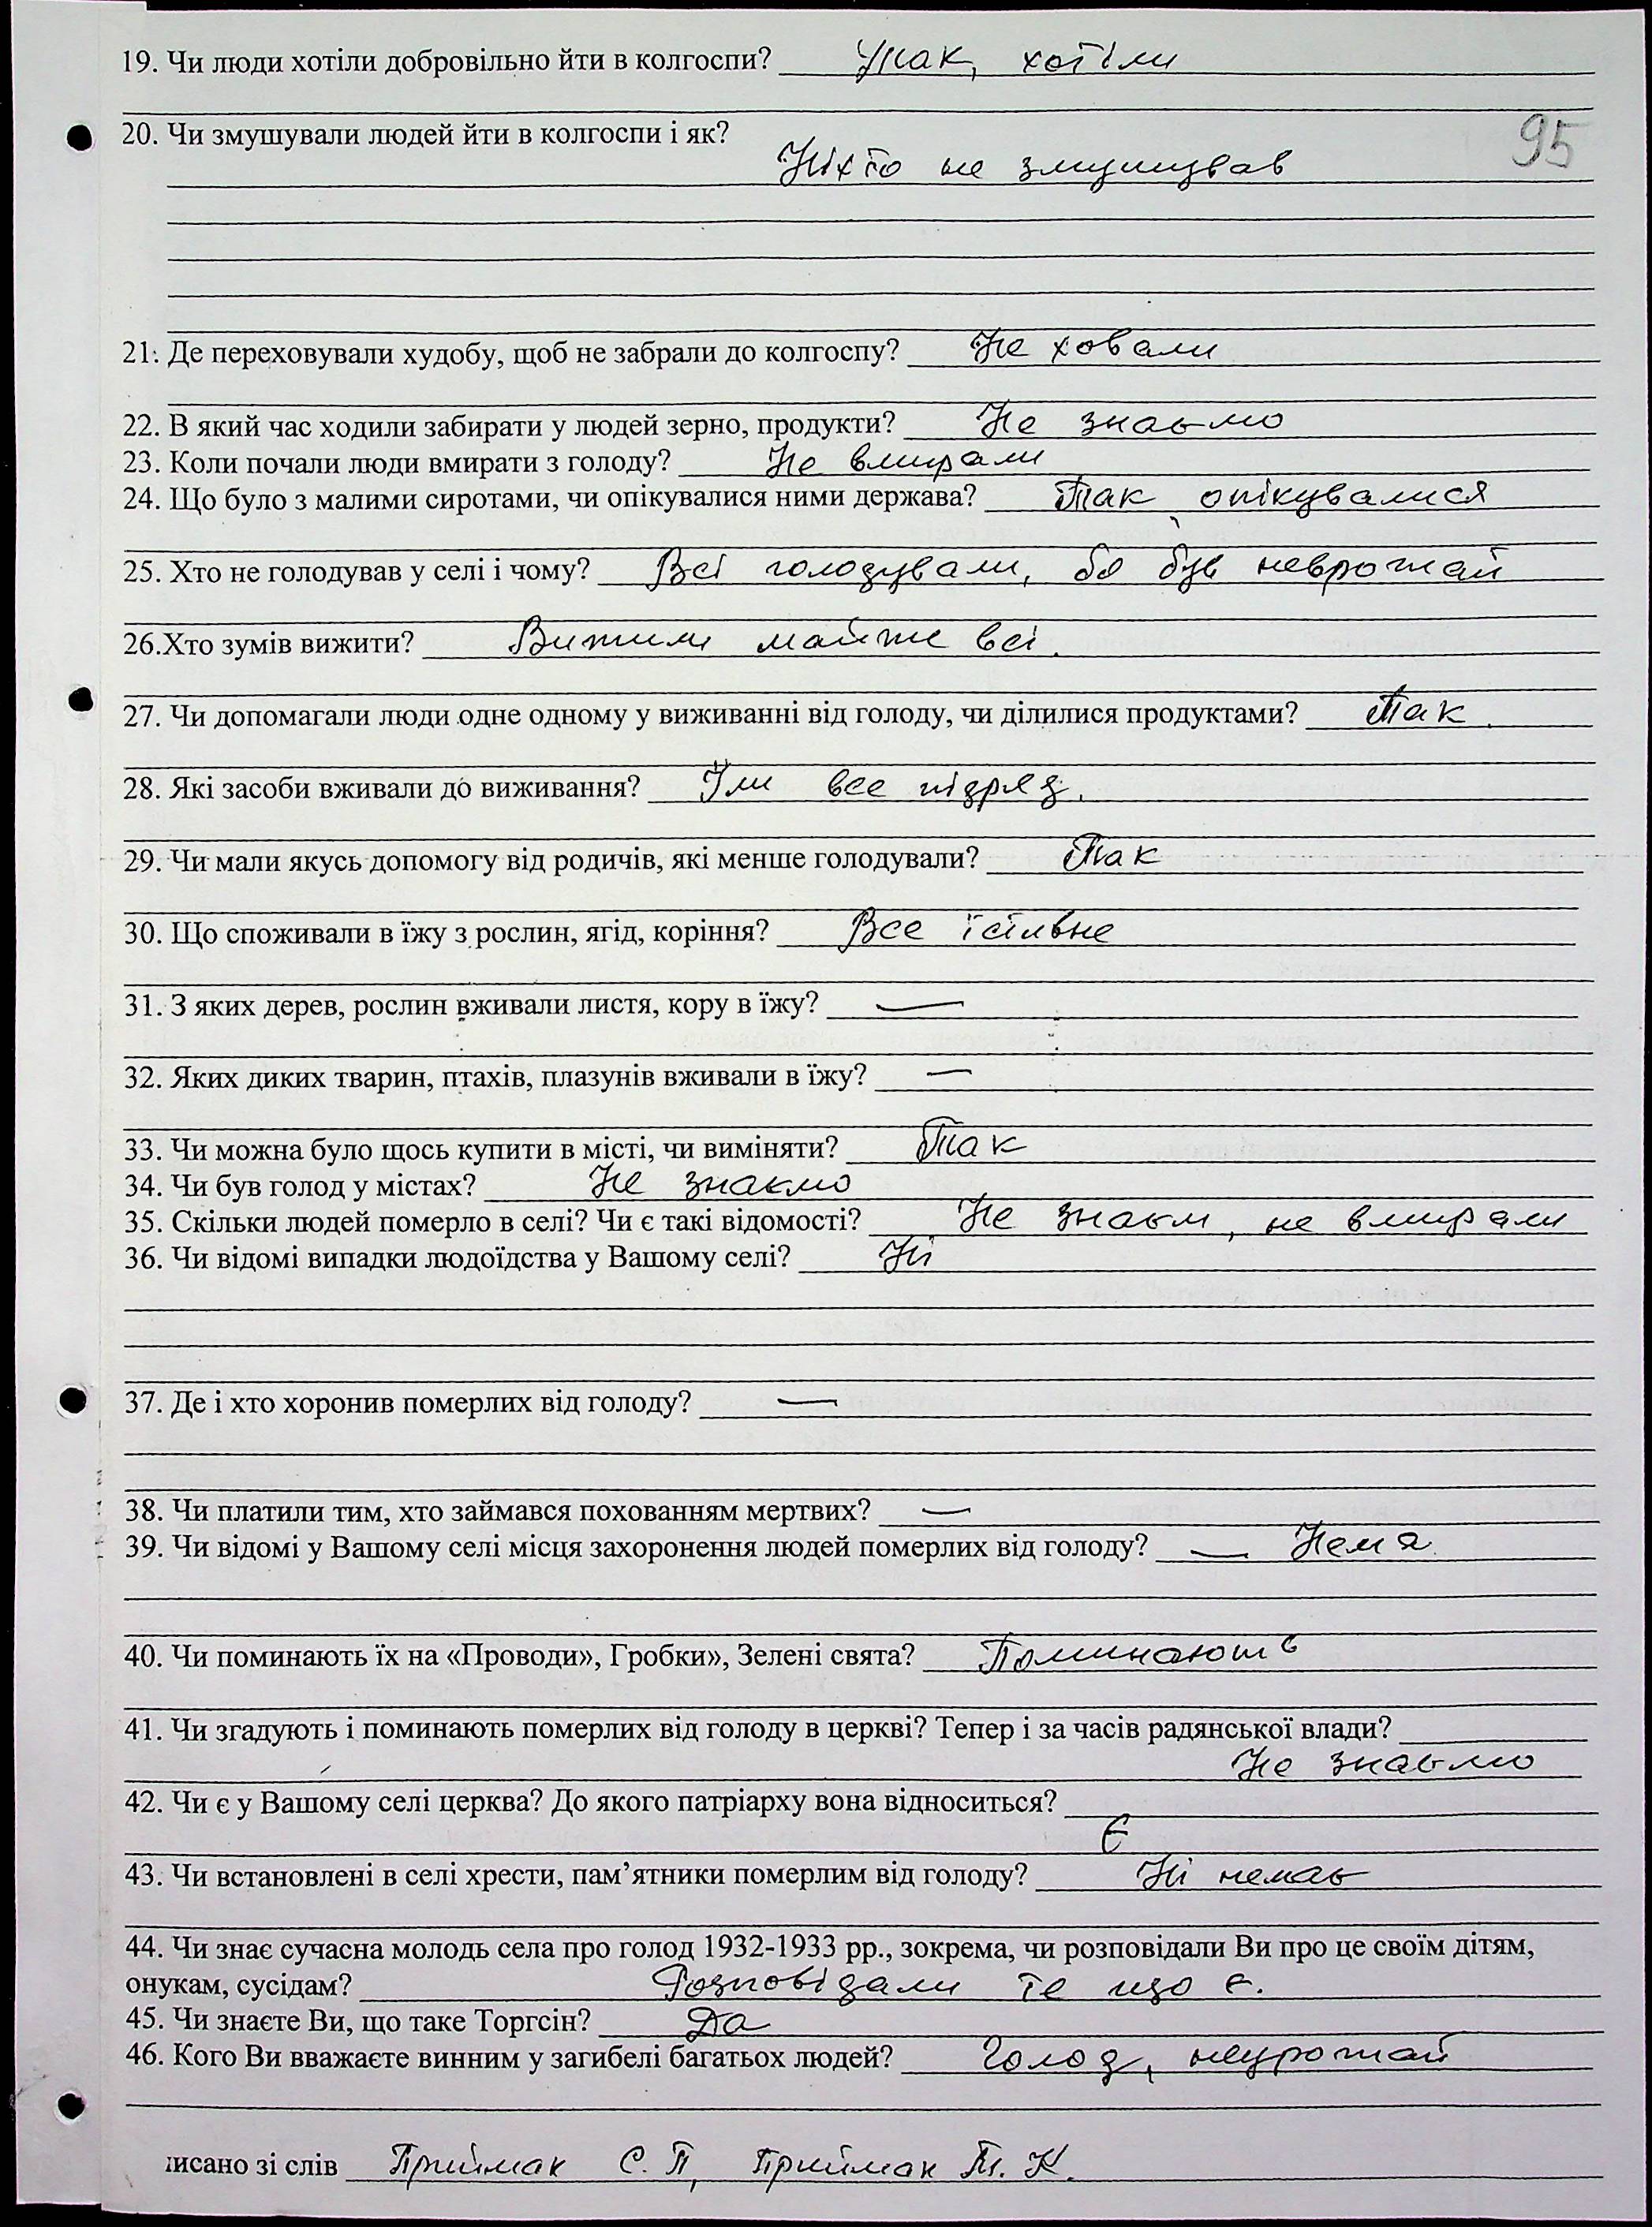 19. Чи люди хотіли добровільно йти в колгоспи? Так, хотіли
20. Чи змушували людей йти в колгоспи і як?
95
Ніхто не змушував
21. Де переховували худобу, щоб не забрали до колгоспу? Не ховали
22. В який час ходили забирати у людей зерно, продукти? Не знаємо
23. Коли почали люди вмирати з голоду? Не вмирали
24. Що було з малими сиротами, чи опікувалися ними держава? Так опікувалися
25. Хто не голодував у селі і чому? Всі голодували, бо був неврожай
26.Хто зумів вижити? Вижили майже всі.
27. Чи допомагали люди одне одному у виживанні від голоду, чи ділилися продуктами? Так.
28. Які засоби вживали до виживання? Їли все підряд.
29. Чи мали якусь допомогу від родичів, які менше голодували? Так
30. Що споживали в їжу з рослин, ягід, коріння? Все їстівне
31. З яких дерев, рослин вживали листя, кору в їжу? —
32. Яких диких тварин, птахів, плазунів вживали в їжу? —
33. Чи можна було щось купити в місті, чи виміняти? Так
34. Чи був голод у містах? Не знаємо
35. Скільки людей померло в селі? Чи є такі відомості? Не знаєм, не вмирали
36. Чи відомі випадки людоїдства у Вашому селі? Ні
37. Де і хто хоронив померлих від голоду? —
38. Чи платили тим, хто займався похованням мертвих? —
39. Чи відомі у Вашому селі місця захоронення людей померлих від голоду? — Нема
40. Чи поминають їх на «Проводи», Гробки», Зелені свята? Поминають
41. Чи згадують і поминають померлих від голоду в церкві? Тепер і за часів радянської влади?
Не знаємо
42. Чи є у Вашому селі церква? До якого патріарху вона відноситься?
Є
43. Чи встановлені в селі хрести, пам’ятники померлим від голоду? Ні немає
44. Чи знає сучасна молодь села про голод 1932-1933 рр., зокрема, чи розповідали Ви про це своїм дітям,
онукам, сусідам? Розповідали те що є.
45. Чи знаєте Ви, що таке Торгсін? Да
46. Кого Ви вважаєте винним у загибелі багатьох людей? Голод, неурожай
исано зі слів Приймак С. П, Приймак Т. К.